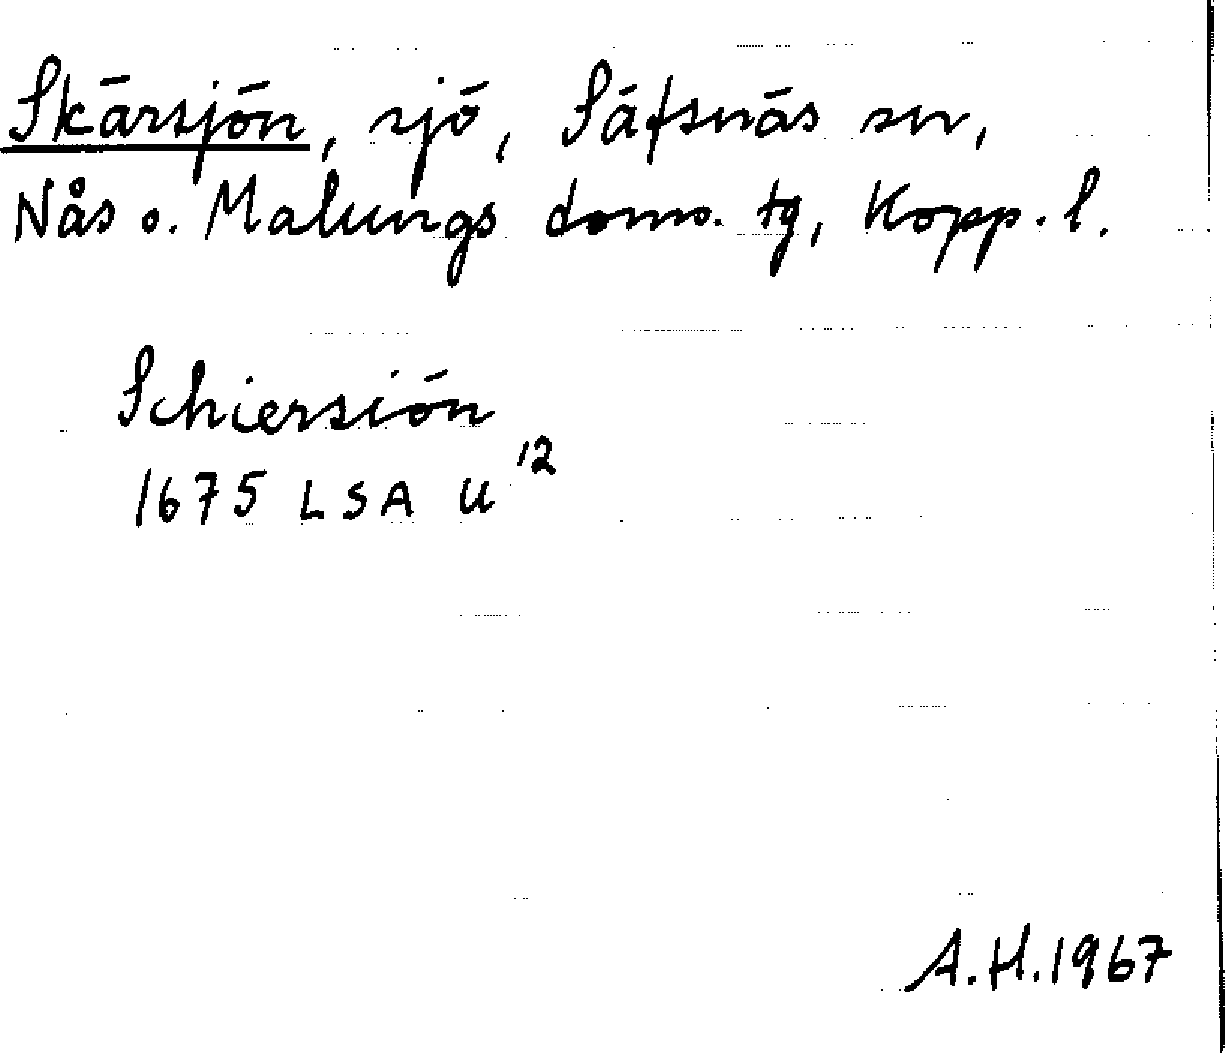 Skärsjön, sjö, Säfsnäs sn,
Nås o. Malungs doms. tg, Kopp. l.
Schiersiön
1675 LSA U 12
A.H. 1967